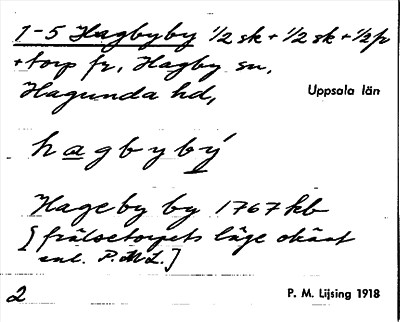 1-5 Hagbyby 1/2 sk + 1/2 sk + 1/2 fr
+ torp fr, Hagby sn,
Hagunda hd, Uppsala län
hagbybý
Hageby by 1767 kb
[frälsetorpets läge okänt
enl. P.M.L.]
2 P. M. Lijsing 1918